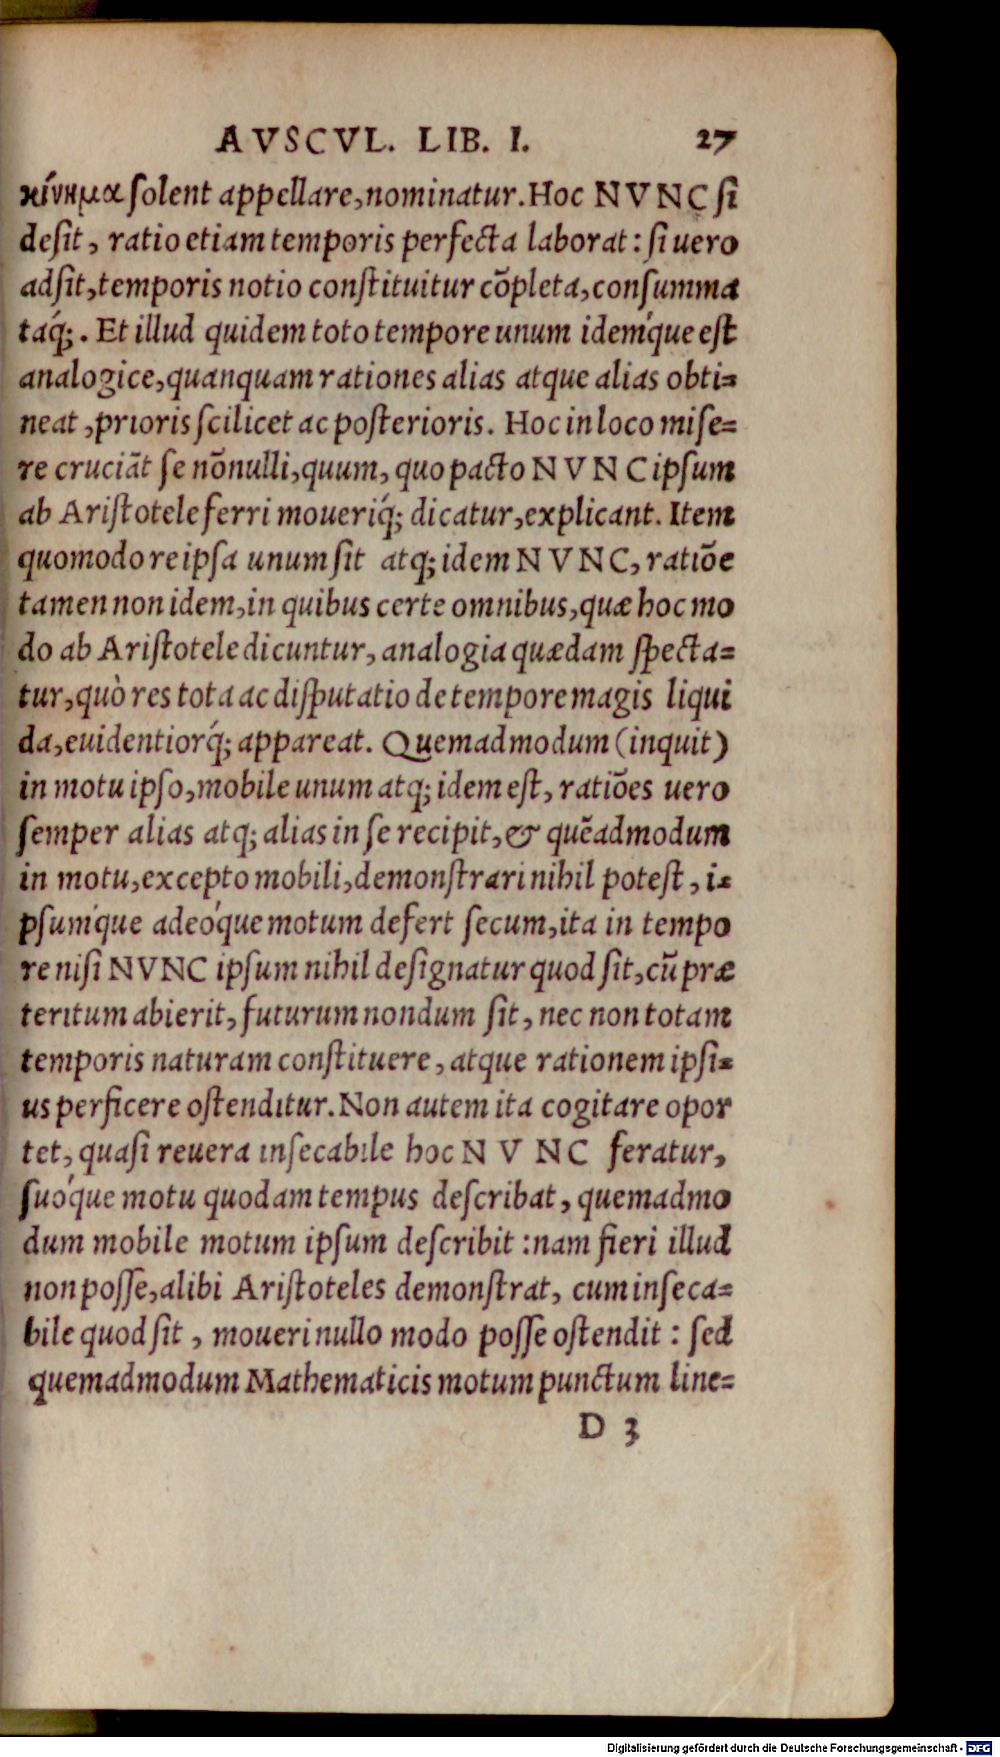 AVSCVL. LIB. I. 27
κίνημα ſolent appellare,nominatur.Hoc NVNC ſi
deſit, ratio etiam temporis perfecta laborat: ſi uero
adſit,temporis notio conſtituitur cõpleta,conſumma
taq́;. Et illud quidem toto tempore unum idemq́ue eſt
analogice,quanquam rationes alias atque alias obti=
neat ,prioris ſcilicet ac poſterioris. Hoc in loco miſe=
re cruciãt ſe nõnulli,quum, quo pacto NVNC ipſum
ab Ariſtotele ferri moueriq́; dicatur,explicant. Item
quomodo reipſa unum ſit atq; idem NVNC, ratiõe
tamen non idem,in quibus certe omnibus,quæ hoc mo
do ab Ariſtotele dicuntur, analogia quædam ſpecta=
tur,quò res tota ac diſputatio de tempore magis liqui
da,euidentiorq́; appareat. Quemadmodum (inquit)
in motu ipſo,mobile unum atq; idem eſt, ratiões uero
ſemper alias atq; alias in ſe recipit,& quẽadmodum
in motu,excepto mobili,demonſtrari nihil poteſt, i=
pſumq́ue adeóque motum defert ſecum,ita in tempo
re niſi NVNC ipſum nihil deſignatur quod ſit,cũ præ
teritum abierit, futurum nondum ſit, nec non totam
temporis naturam conſtituere, atque rationem ipſi=
us perficere oſtenditur. Non autem ita cogitare opor
tet, quaſi reuera inſecabile hoc NVNC feratur,
ſuóque motu quodam tempus deſcribat, quemadmo
dum mobile motum ipſum deſcribit :nam fieri illud
non poſſe,alibi Ariſtoteles demonſtrat, cum inſeca=
bile quod ſit , moueri nullo modo poſſe oſtendit : ſed
quemadmodum Mathematicis motum punctum line=
D 3
Digitalisierung gefördert durch die Deutsche Forschungsgemeinschaft - DFG